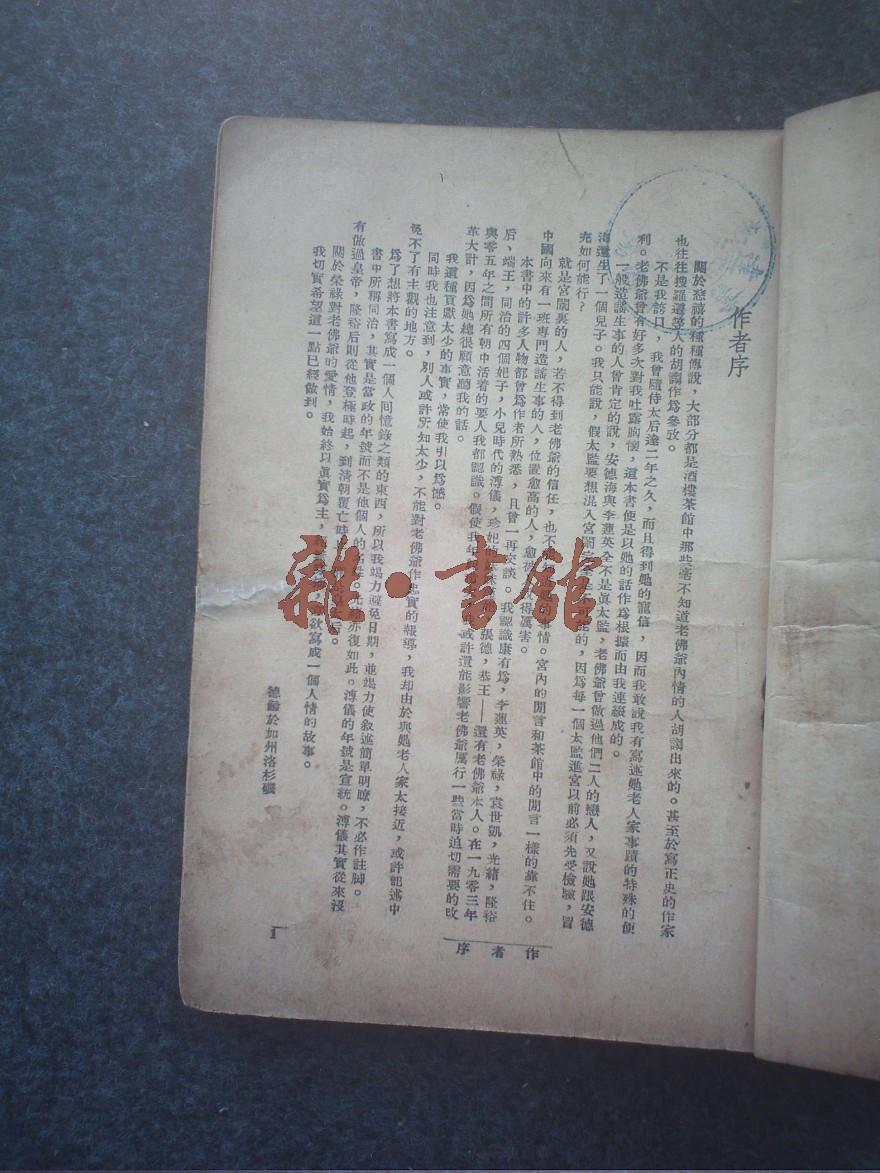 作者序
關於慈禧的種種傳說，大部分都是酒樓茶館中那些毫不知道老佛爺內情的人胡謅出來的。甚至於寫正史的作家
也往往搜羅這些人的胡謅作爲參攷。
不是我誇口，我曾隨侍太后達二年之久，而且得到她的寵信，因而我敢說我有寫述她老人家事蹟的特殊的便
利。老佛爺曾有好多次對我吐露胸懷，這本書便是以她的話作爲根據而由我連綴成的。
一般造謠生事的人曾肯定的說，安德海與李蓮英全不是眞太監，老佛爺曾做過他們二人的戀人，又說她跟安德
海還生了一個兒子。我只能說，假太監要想混入宮闈 可能的，因爲每一個太監進宮以前必須先受檢驗，冒
充如何能行？
就是宮闈裏的人，若不得到老佛爺的信任，也不 事情。宮內的閒言和茶館中的閒言一樣的靠不住。
中國向來有一班專門造謠生事的人，位置愈高的人，愈 得厲害。
本書中的許多人物都曾爲作者所熟悉，且曾一再交談。我認識康有爲，李蓮英，榮祿，袁世凱，光緒，隆裕
后，端王，同治的四個妃子，小兒時代的溥儀，珍妃 張德，恭王——還有老佛爺本人。在一九零三年
與零五年之間所有朝中活着的要人我都認識。假使我年 或許還能影響老佛爺厲行一些當時迫切需要的改
革大計，因爲她總很願意聽我的話。
我這種貢獻太少的事實，常使我引以爲憾。
同時我也注意到，別人或許所知太少，不能對老佛爺作忠實的報導，我却由於與她老人家太接近，或許記述中
免不了有主觀的地方。
爲了想將本書寫成一個人回憶錄之類的東西，所以我竭力避免日期，並竭力使敘述簡單明瞭，不必作註脚。
書中所稱同治，其實是當政的年號而不是他個人的名 。光緒亦復如此。溥儀的年號是宣統。溥儀其實從來沒
有做過皇帝，隆裕后則從他登極時起，到清朝覆亡時
關於榮祿對老佛爺的愛情，我始終以眞實爲主， 欲寫成一個人情的故事。
我切實希望這一點已經做到。
德齡於加州洛杉磯
作者序
1
雜·書館